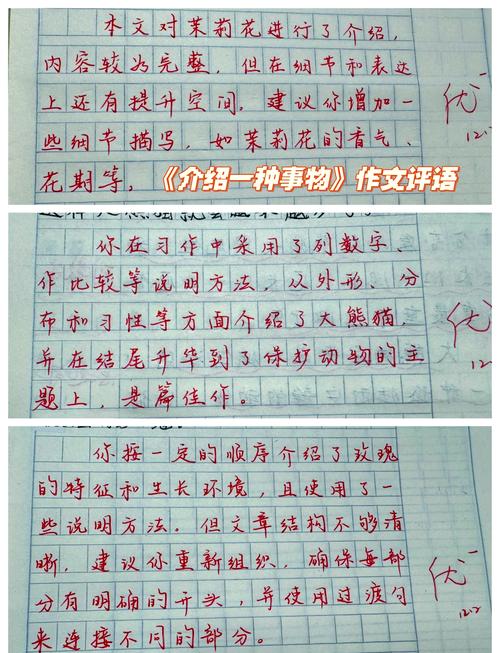 本文对茉莉花进行了介绍,
内容较为完整,但在细节和表达
上还有提升空间。建议你增加一
些细节描写,如茉莉花的香气、
花期等。
《介绍一种事物》作文评语
优
12.
你在习作中采用了列数字、
作比较等说明方法,从外形、分
布和习性等方面介绍了大熊猫,
并在结尾升华到了保护动物的主
题上,是篇佳作。
优
你按一定的顺序介绍了玫瑰
的特征和生长环境,且使用了一
些说明方法。但文章结构不够清
晰,建议你重新组织,确保每部
分有明确的开头,并使用过渡句
来连接不同的部分。
优
12.2